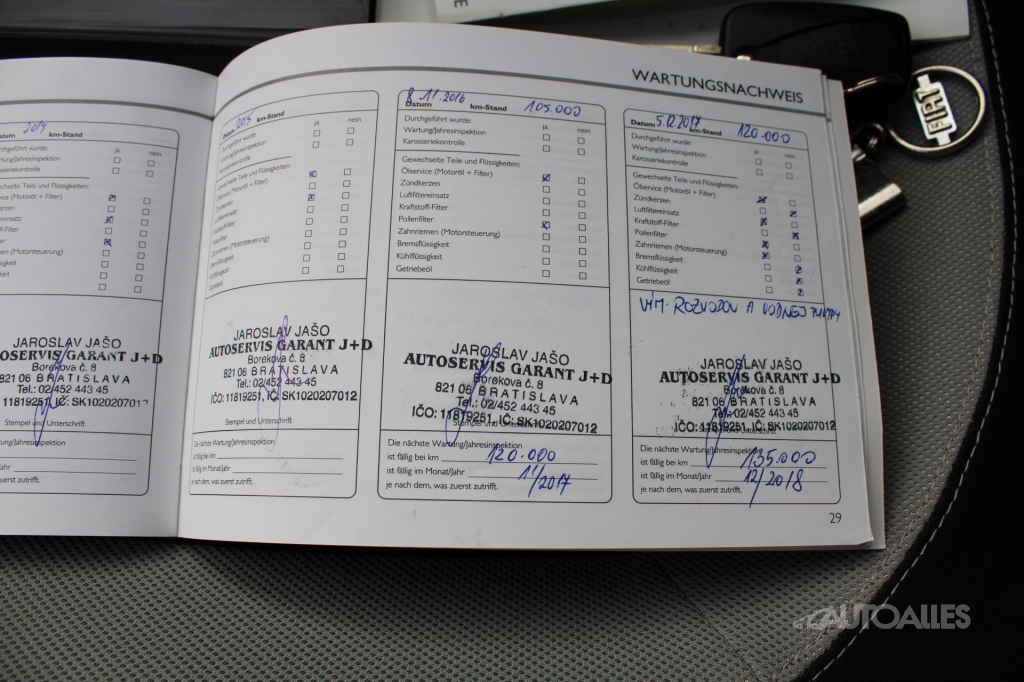 WARTUNGSNACHWEIS
2014
km-Stand
Durchgeführt wurde:
ja nein
Gewechselte Teile und Flüssigkeiten:
JAROSLAV JAŠO
AUTOSERVIS GARANT J+D
Borekova č. 8
821 06 BRATISLAVA
Tel.: 02/452 443 45
11819251, IČ: SK1020207012
Stempel und Unterschrift
Datum 2015 km-Stand
Durchgeführt wurde: ja nein
Wartung/Jahresinspektion
Karosseriekontrolle
Gewechselte Teile und Flüssigkeiten:
Ölservice (Motoröl + Filter)
Zündkerzen
Luftfiltereinsatz
Kraftstoff-Filter
Pollenfilter
Zahnriemen (Motorsteuerung)
Bremsflüssigkeit
Kühlflüssigkeit
Getriebeöl
JAROSLAV JAŠO
AUTOSERVIS GARANT J+D
Borekova č. 8
821 06 BRATISLAVA
Tel.: 02/452 443 45
IČO: 11819251, IČ: SK1020207012
Stempel und Unterschrift
Die nächste Wartung/Jahresinspektion
ist fällig bei km
ist fällig im Monat/Jahr
je nach dem, was zuerst zutrifft.
8.11.2016 105.000
Datum km-Stand
Durchgeführt wurde: ja nein
Wartung/Jahresinspektion
Karosseriekontrolle
Gewechselte Teile und Flüssigkeiten:
Ölservice (Motoröl + Filter)
Zündkerzen
Luftfiltereinsatz
Kraftstoff-Filter
Pollenfilter
Zahnriemen (Motorsteuerung)
Bremsflüssigkeit
Kühlflüssigkeit
Getriebeöl
JAROSLAV JAŠO
AUTOSERVIS GARANT J+D
Borekova č. 8
821 06 BRATISLAVA
Tel.: 02/452 443 45
IČO: 11819251, IČ: SK1020207012
Stempel und Unterschrift
Die nächste Wartung/Jahresinspektion
ist fällig bei km 120.000
ist fällig im Monat/Jahr 11/2017
je nach dem, was zuerst zutrifft.
Datum 5.12.2017 km-Stand 120.000
Durchgeführt wurde: ja nein
Wartung/Jahresinspektion
Karosseriekontrolle
Gewechselte Teile und Flüssigkeiten:
Ölservice (Motoröl + Filter)
Zündkerzen
Luftfiltereinsatz
Kraftstoff-Filter
Pollenfilter
Zahnriemen (Motorsteuerung)
Bremsflüssigkeit
Kühlflüssigkeit
Getriebeöl
VÝM. ROZVODOV A VODNEJ PUMPY
JAROSLAV JAŠO
AUTOSERVIS GARANT J+D
Borekova č. 8
821 06 BRATISLAVA
Tel.: 02/452 443 45
IČO: 11819251, IČ: SK1020207012
Die nächste Wartung/Jahresinspektion
ist fällig bei km 135.000
ist fällig im Monat/Jahr 12/2018
je nach dem, was zuerst zutrifft.
29
FIAT
AUTOALLES